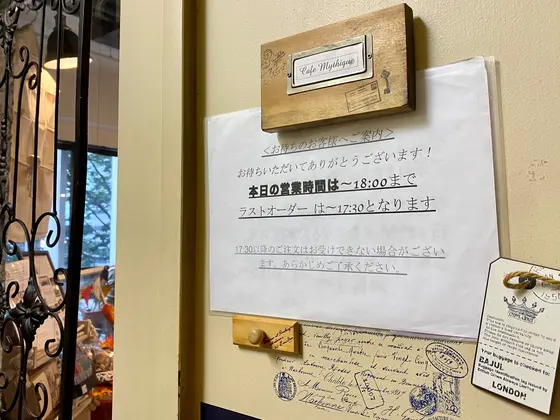 Cafe Mythique
<お待ちのお客様へご案内>
お待ちいただいてありがとうございます！
本日の営業時間は～18:00まで
ラストオーダー は～17:30となります
17:30以降のご注文はお受けできない場合がござい
ます。あらかじめご了承ください。
Your baggage is checked to:
BAJUL
LONDON